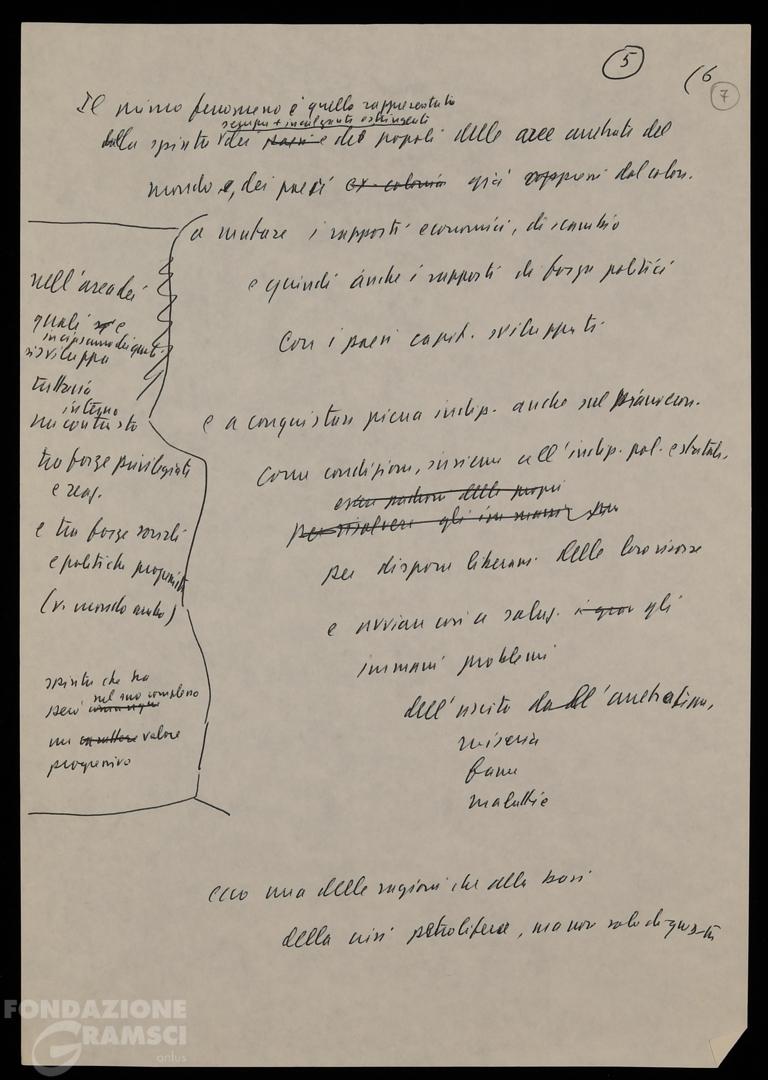 5
(6
7
Il primo fenomeno è quello rappresentato
sempre + incalzante e stringente
dalla spinta dei paesi e dei popoli delle aree arretrate del
mondo e, dei paesi ex-colonia già oppressi dal colon.
a mutare i rapporti economici, di scambio
e quindi anche i rapporti di forza politici
con i paesi capit. sviluppati
nell'area dei
quali si e
in ciascuno dei quali
si sviluppa
tuttavia
interno
un contrasto
tra forze privilegiate
e reaz.
e tra forze sociali
e politiche progressiste
(v. mondo arabo)
spinta che ha
nel suo complesso
però
un carattere valore
progressivo
e a conquistare piena indip. anche sul piano econ.
come condizione, insieme all'indip. pol. e statale,
esser padroni delle propri
per risolvere gli immani
per disporre liberam. delle loro risorse
e avviare così a soluz. i gravi gli
immani problemi
dell'uscita dall'arretratezza,
miseria
fame
malattie
ecco una delle ragioni che alla base
della crisi petrolifera, ma non solo di questa
FONDAZIONE
GRAMSCI
onlus